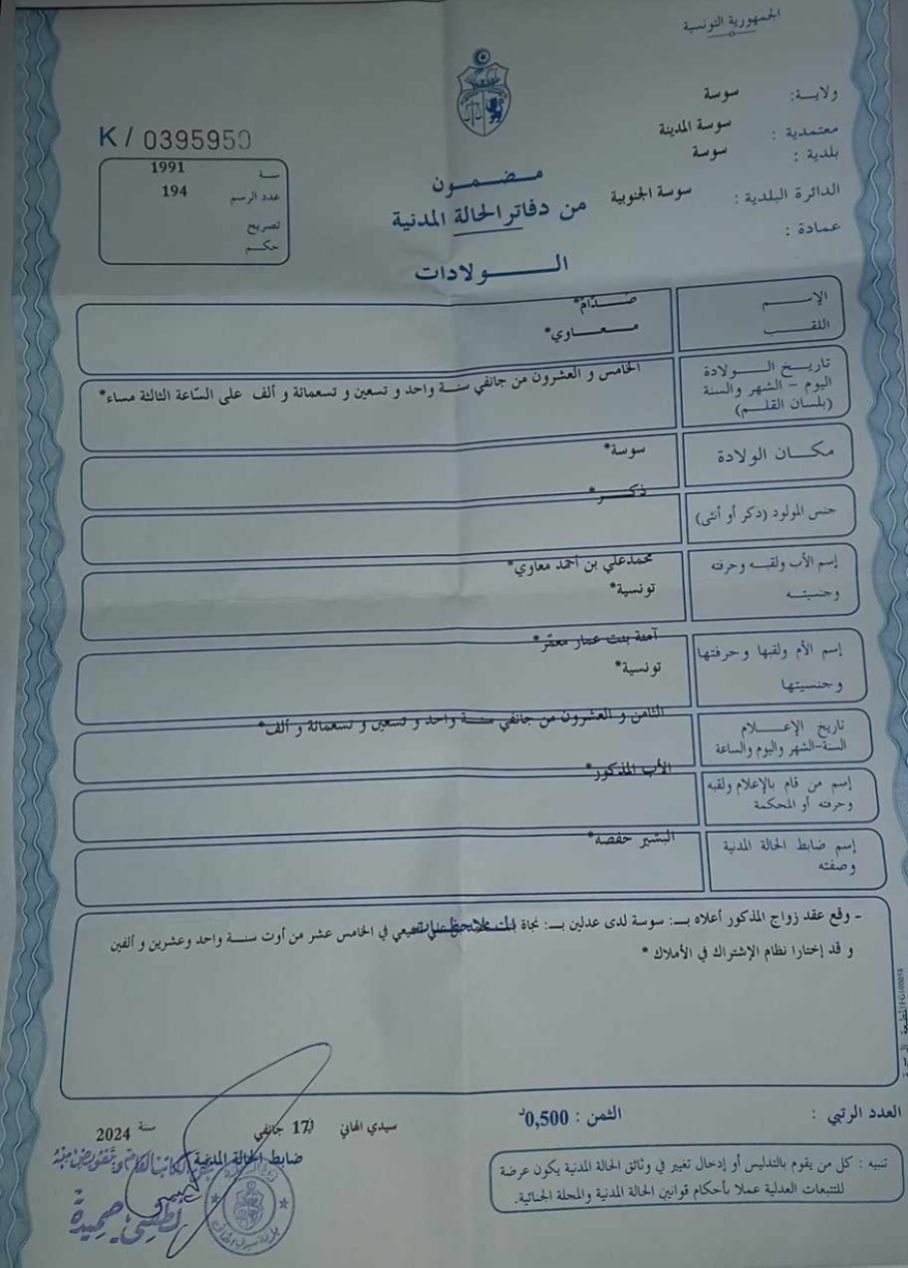 الجمهورية التونسية
ولايـــة: سوسة
معتمدية : سوسة المدينة
بلدية : سوسة
الدائرة البلدية : سوسة الجنوبية
عمادة :
K / 0395950
سنة 1991
عدد الرسم 194
تصريح
حكم
مضمون
من دفاتر الحالة المدنية
الـــولادات
الإســـم صـــدّام*
اللقـــب معـــاوي*
تاريـــخ الـــولادة
اليوم - الشهر والسنة
(بلسان القلـــم)
الخامس و العشرون من جانفي سنـة واحد و تسعين و تسعمائة و ألف على السّاعة الثالثة مساء*
مكـــان الولادة سوسة*
جنس المولود (ذكر أو أنثى) ذكـــر*
إسم الأب ولقبـــه وحرفته محمدعلي بن أحمد معاوي*
وجنسيتـــه تونسية*
إسم الأم ولقبها وحرفتها آمنة بنت عمار معمّر*
وجنسيتها تونسية*
تاريخ الإعـــلام
السنة-الشهر واليوم والساعة
الثامن و العشرون من جانفي سنـة واحد و تسعين و تسعمائة و ألف*
إسم من قام بالإعلام ولقبه
وحرفته أو المحكمة
الأب المذكور*
إسم ضابط الحالة المدنية
وصفته
البشير حفصه*
ملاحظـــات
- وقع عقد زواج المذكور أعلاه بـــ: سوسة لدى عدلين بـــ: نجاة في الخامس عشر من أوت سنـــة واحد وعشرين و ألفين
و قد إختارا نظام الإشتراك في الأملاك *
العدد الرتبي :
الثمن : 0,500د
سيدي الهاني في 17 جانفي سنة 2024
ضابط الحالة المدنية
تنبيه : كل من يقوم بالتدليس أو إدخال تغيير في وثائق الحالة المدنية يكون عرضة
للتتبعات العدلية عملا بأحكام قوانين الحالة المدنية والمجلة الجنائية.
لطفي حميدة